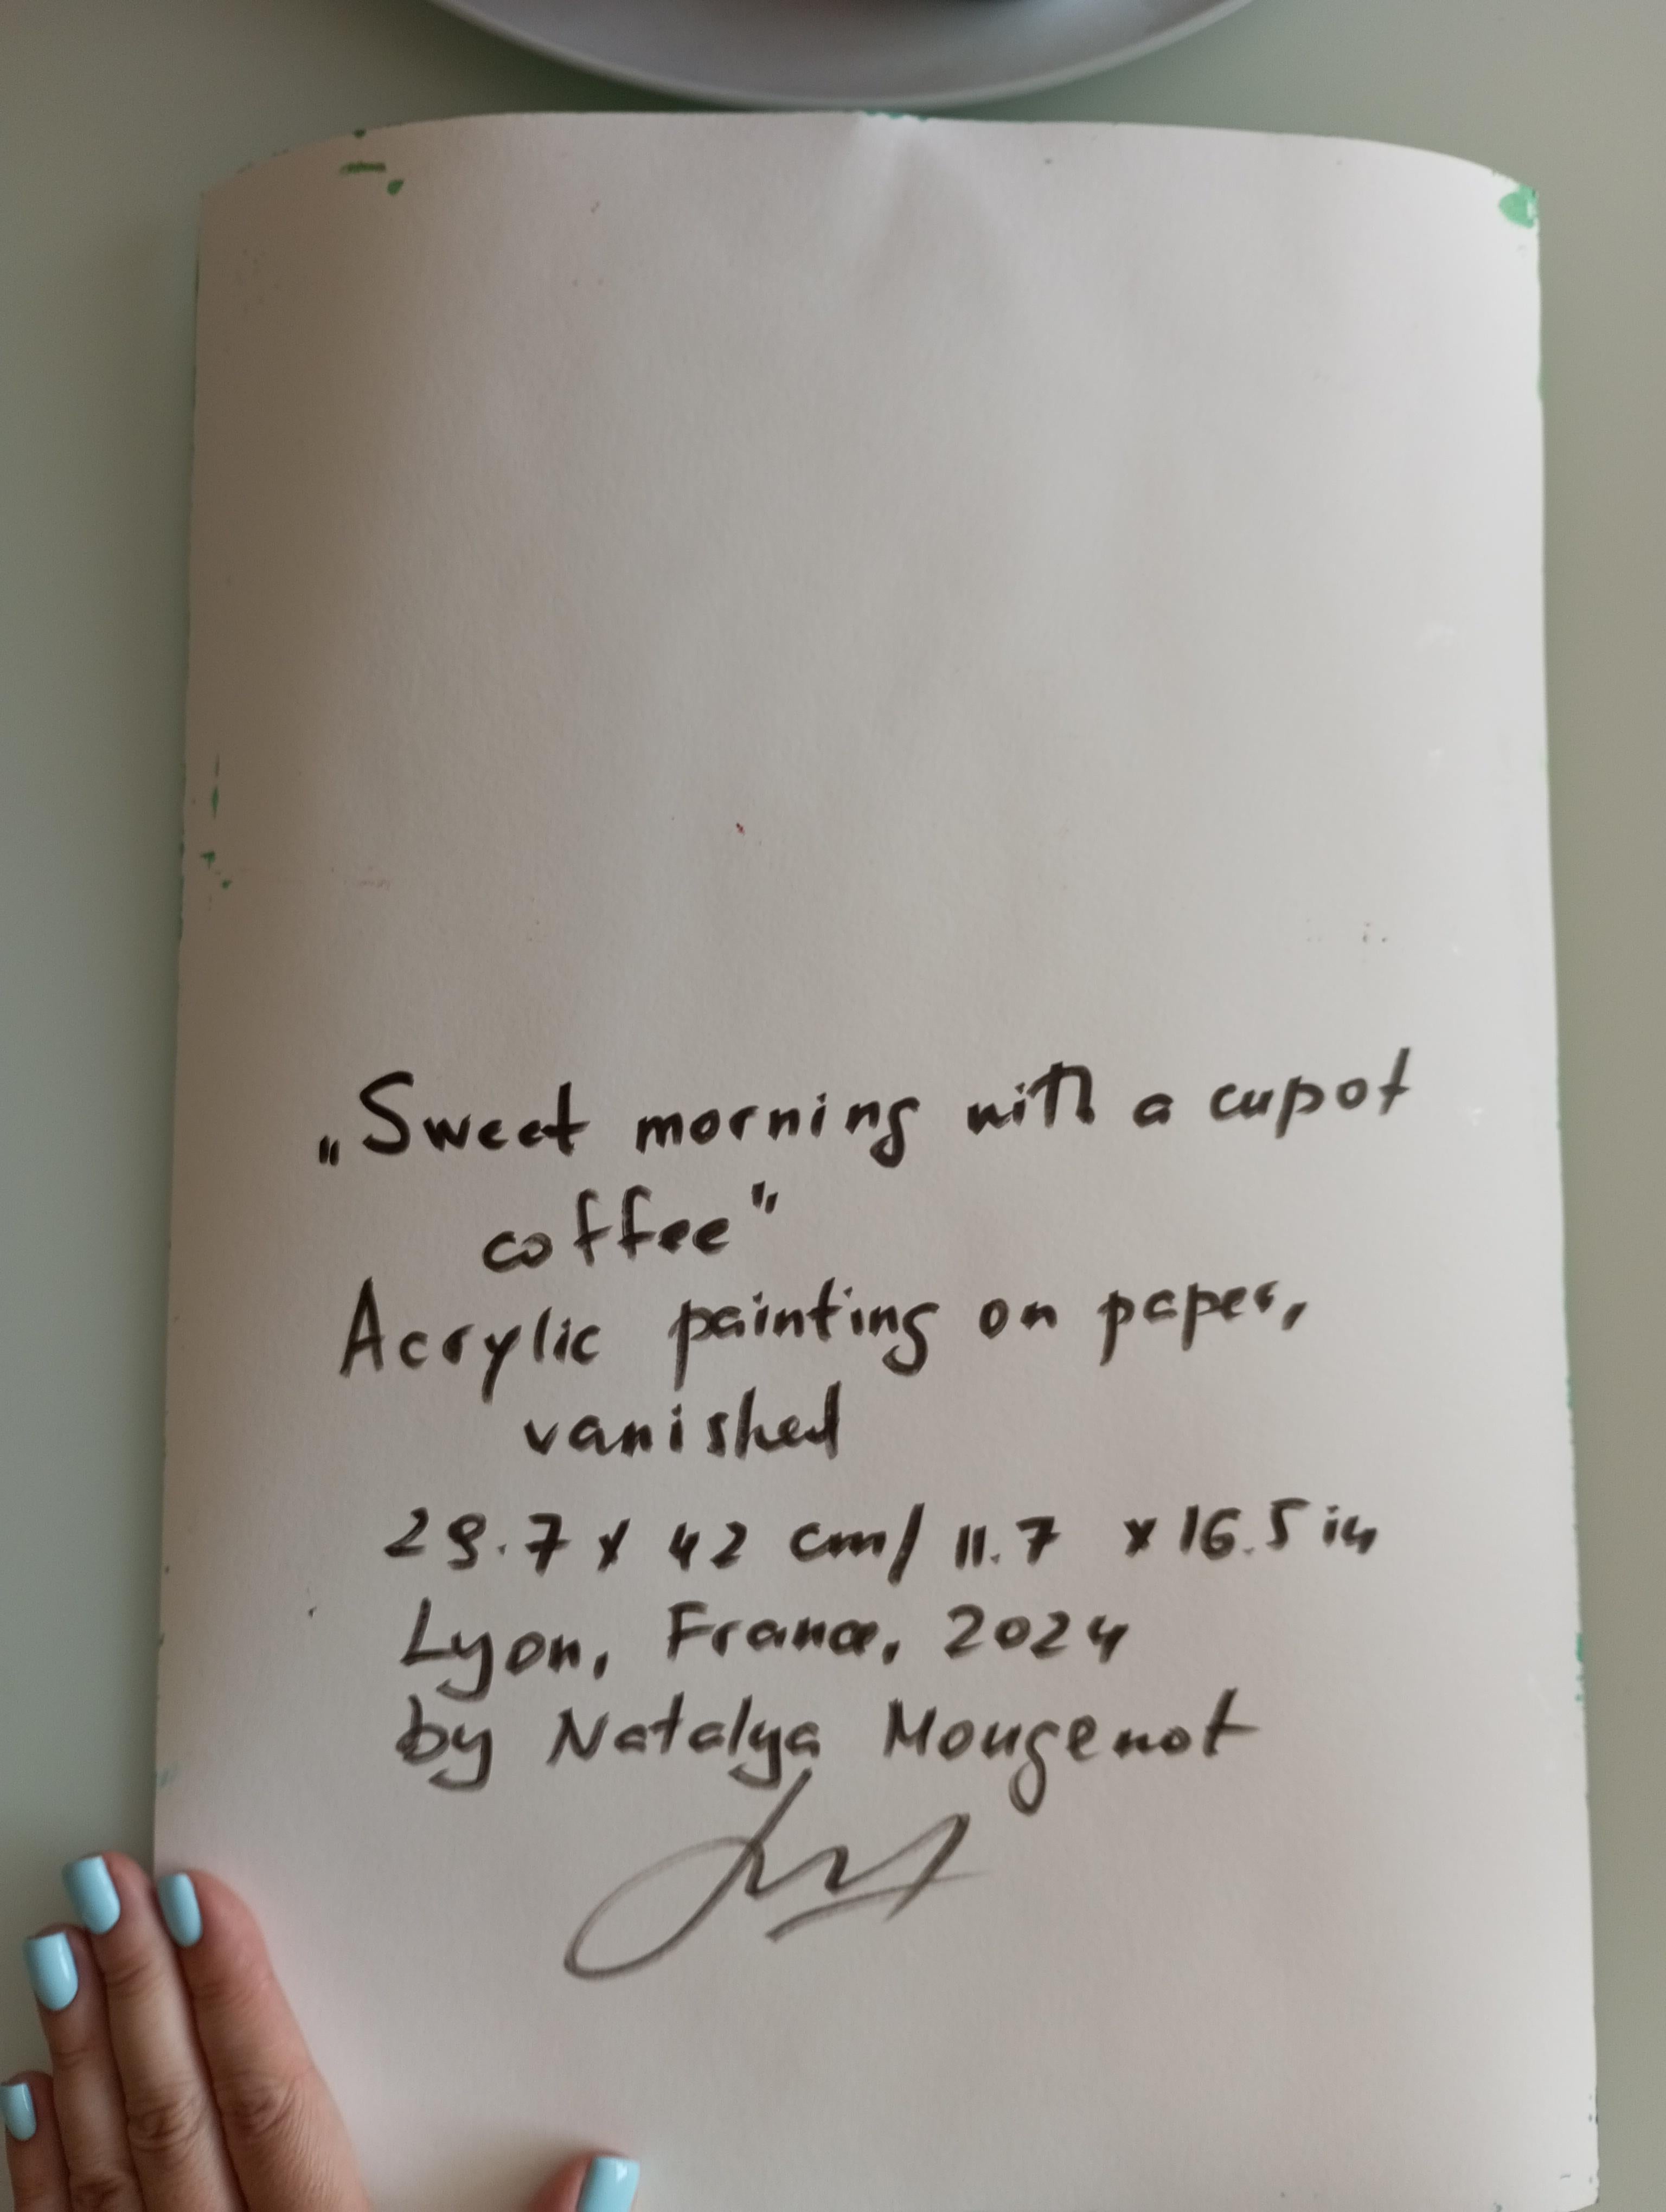 „Sweet morning with a cup of
coffee"
Acrylic painting on paper,
vanished
29.7 x 42 cm/ 11.7 x 16.5 in
Lyon, France, 2024
by Natalya Mougenot